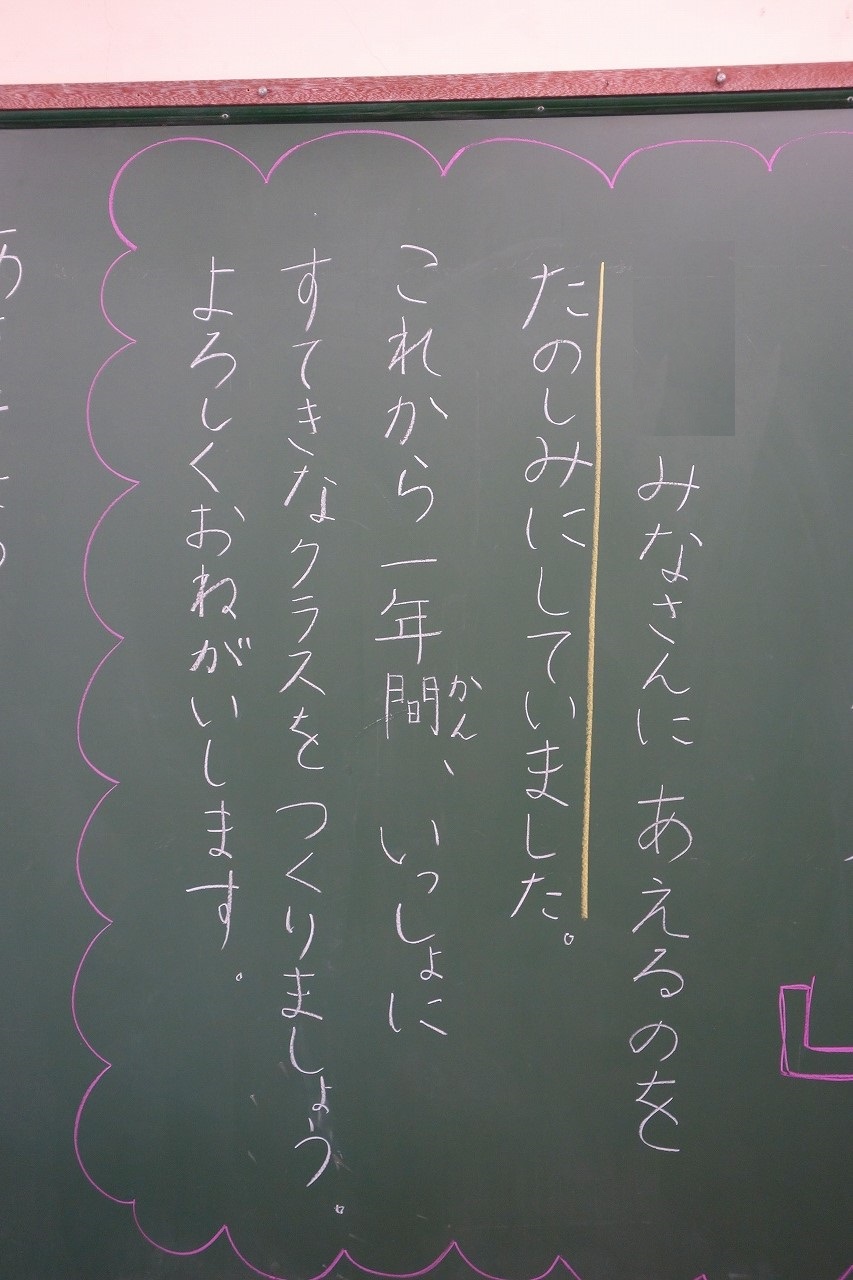 みなさんに あえるのを
たのしみにしていました。
これから一年間、いっしょに
かん
すてきなクラスを つくりましょう。
よろしくおねがいします。